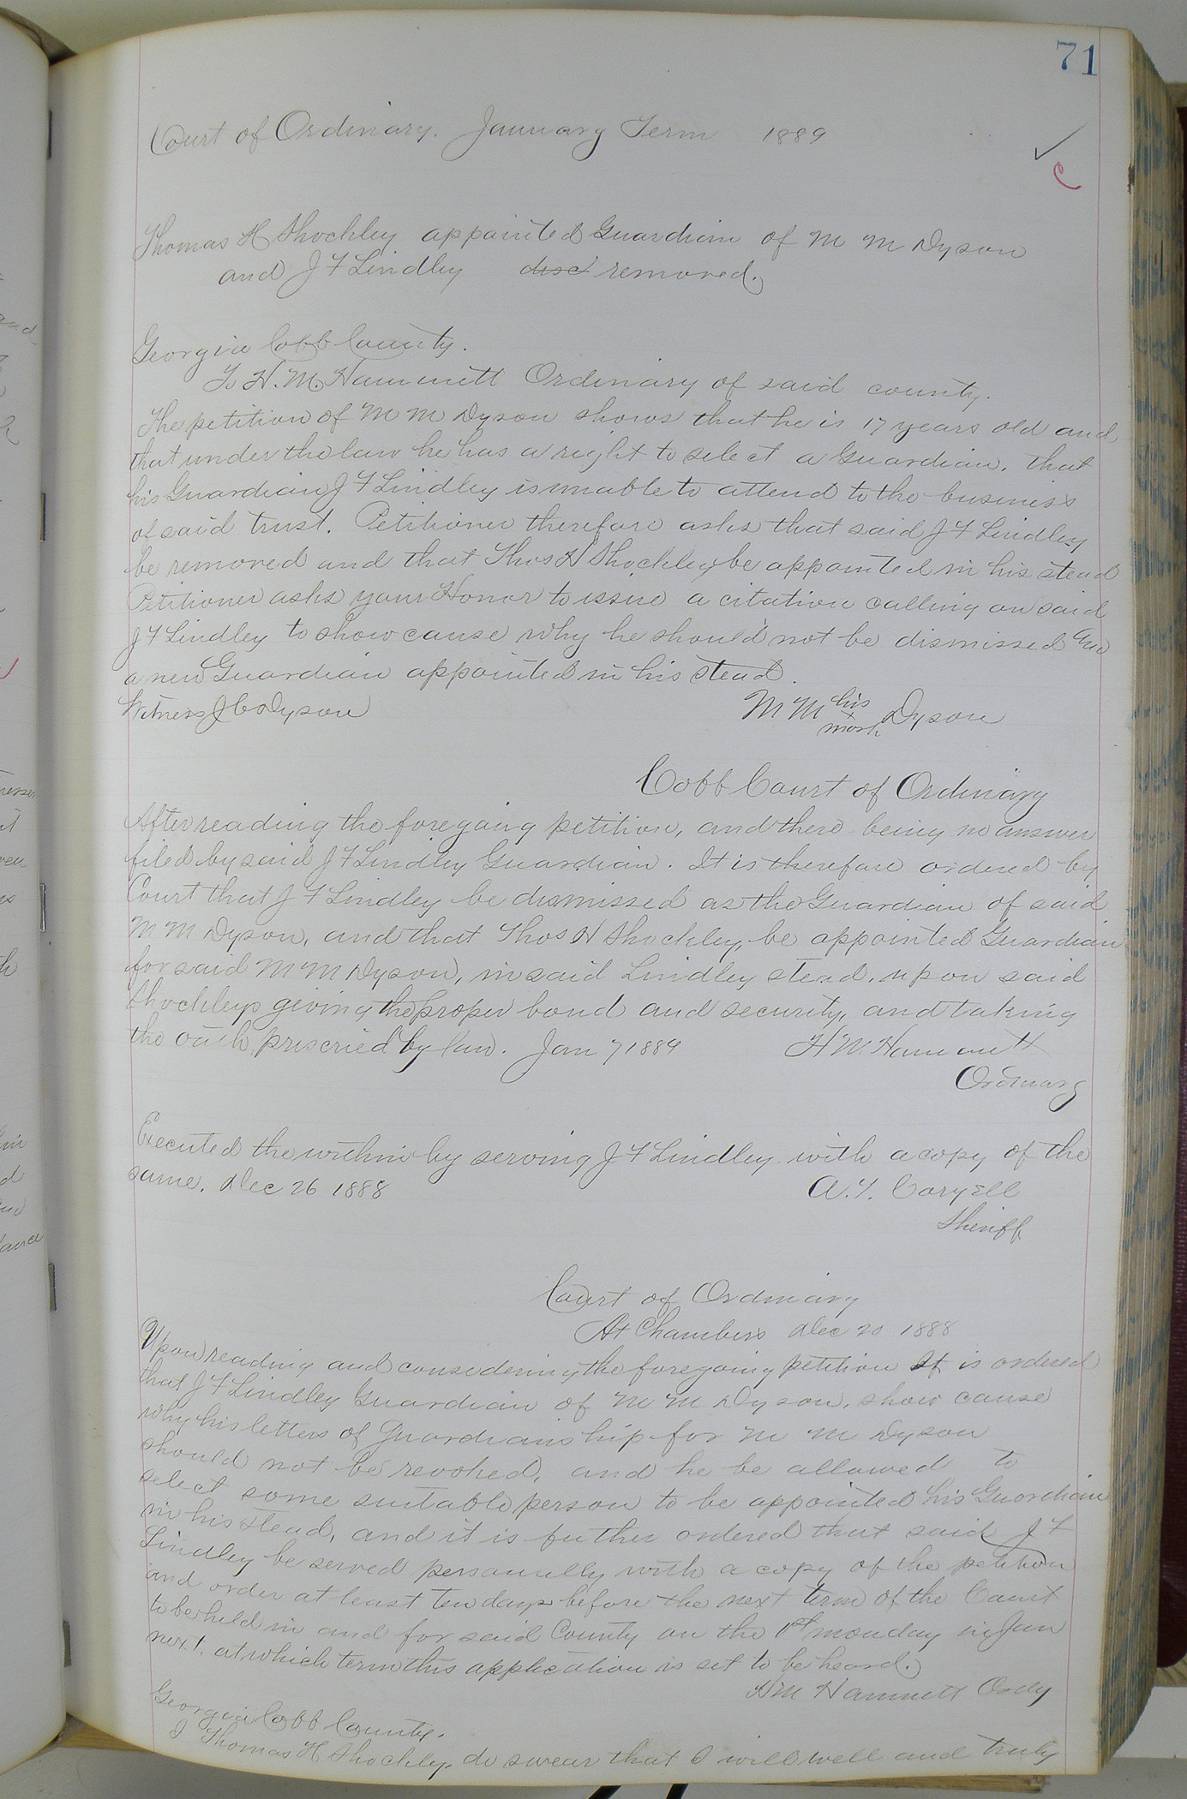 71
Court of Ordinary. January Term 1889
Thomas H Shockley appointed Guardian of M M Dyson
and J F Lindley disc removed.
Georgia Cobb County.
To H. M. Hammett Ordinary of said county.
The petition of M M Dyson shows that he is 17 years old and
that under the law he has a right to select a Guardian. That
his Guardian J F Lindley is unable to attend to the business
of said trust. Petitioner therefore asks that said J F Lindley
be removed and that Thos H Shockley be appointed in his stead
Petitioner asks your Honor to issue a citation calling on said
J F Lindley to show cause why he should not be dismissed and
a new Guardian appointed in his stead.
Witness J C Dyson M M his x mark Dyson
Cobb Court of Ordinary
After reading the foregoing petition, and there being no answer
filed by said J F Lindley Guardian. It is therefore ordered by
Court that J F Lindley be dismissed as the Guardian of said
M M Dyson, and that Thos H Shockley, be appointed Guardian
for said M M Dyson, in said Lindley stead, upon said
Shockleys giving the proper bond and security, and taking
the oath prescried by law. Jan 7 1889 H M. Hammett
Ordinary
Executed the within by serving J F Lindley with a copy of the
same. Dec 26 1888 A. Y. Coryell
Sheriff
Court of Ordinary
At Chambers Dec 20 1888
Upon reading and considering the foregoing petition It is ordered
that J F Lindley Guardian of M M Dyson, show cause
why his letters of Guardianship for M M Dyson
should not be revoked, and he be allowed to
select some suitable person to be appointed his Guardian
in his stead, and it is futher ordered that said J F
Lindley be served personally with a copy of the petition
and order at least ten days before the next term of the Court
to be held in and for said County on the 1st monday in Jan
next. at which term this application is set to be heard.
H M Hammett Ordy
Georgia Cobb County.
I Thomas H Shockley do swear that I will well and truly